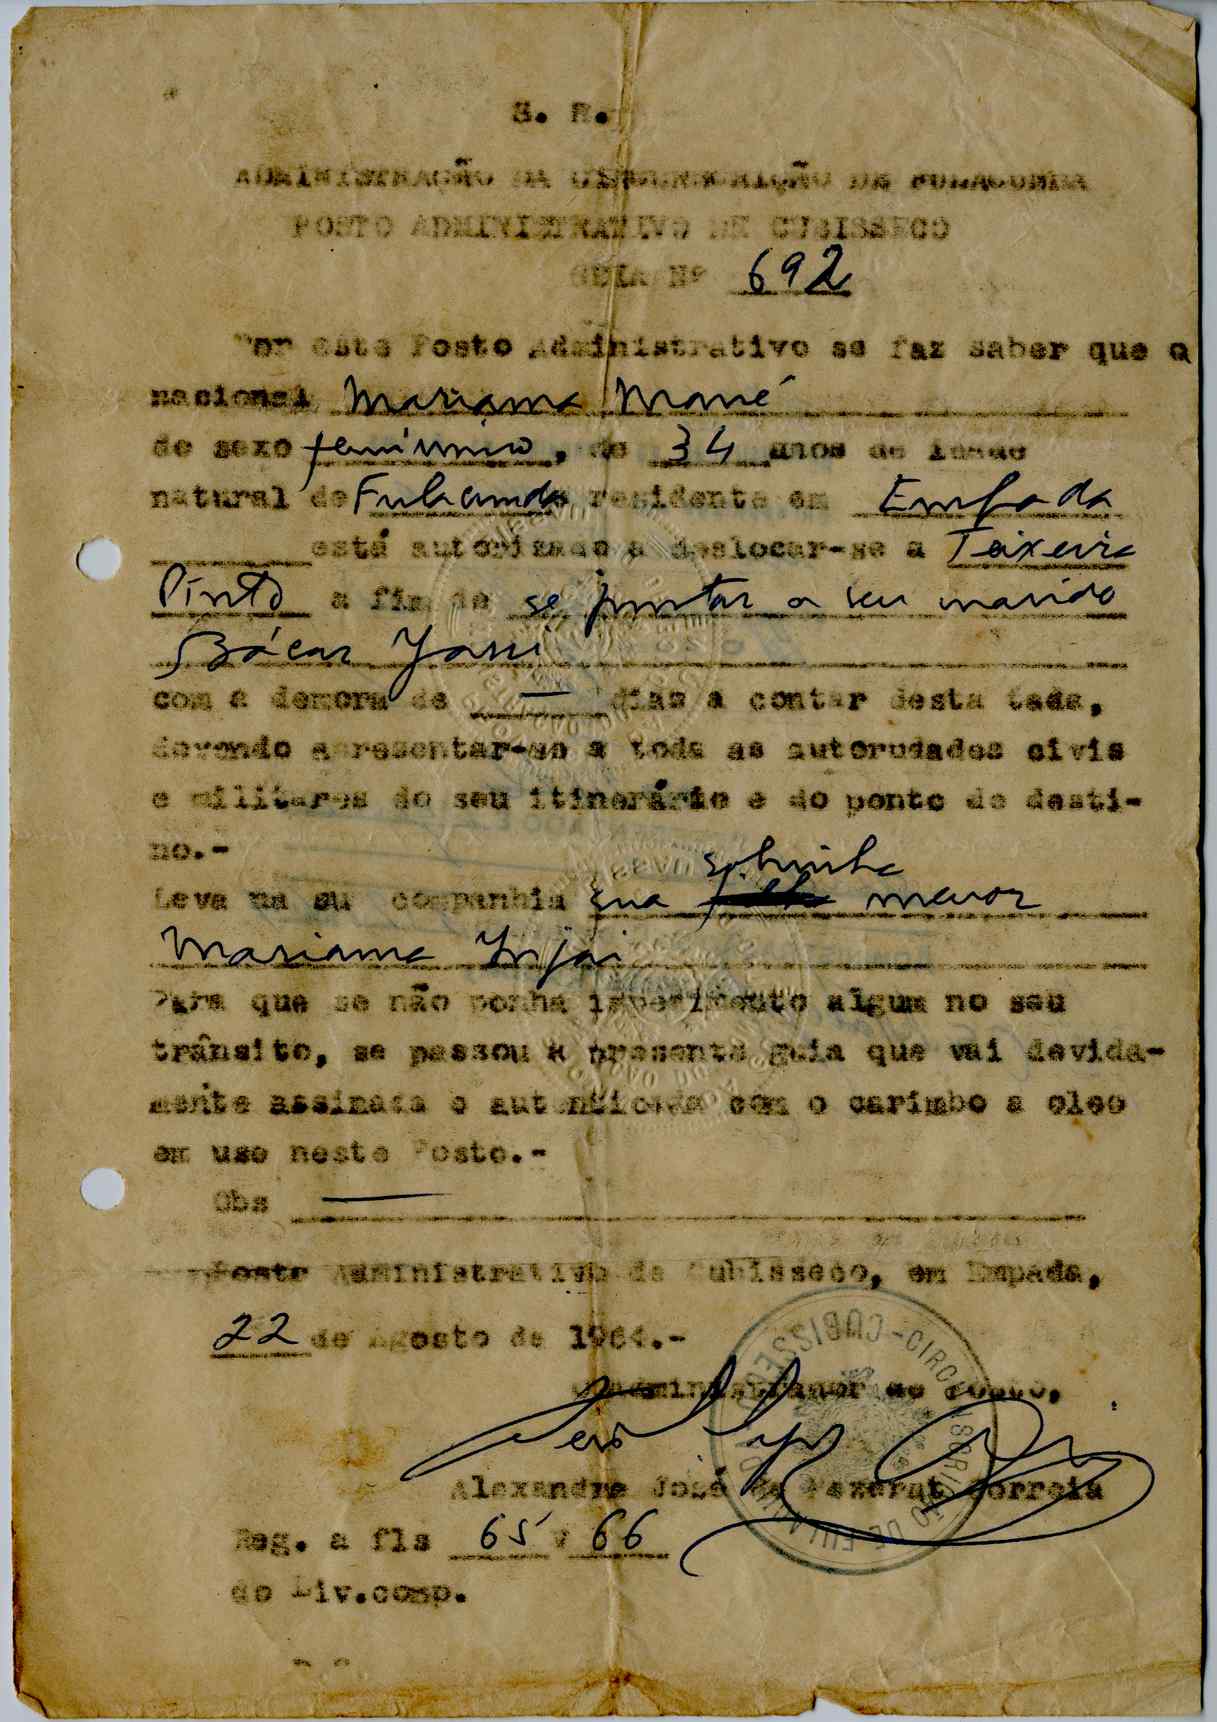 S. R.
ADMINISTRAÇÃO DA CIRCUNSCRIÇÃO DE FULACUNDA
POSTO ADMINISTRATIVO DE CUBISSECO
GUIA Nº 692
Por este Posto Administrativo se faz saber que o
nacional Mariama Mané
de sexo feminino, de 34 anos de idade
natural de Fulacunda residente em Empada
está autorizado a deslocar-se a Teixeira
Pinto a fim de se juntar a seu marido
Bácar
com a demora de — dias a contar desta tada,
devendo apresentar-se a toda as autorudades civis
e militares do seu itinerário e do ponto de desti-
no.-
sobrinha
Leva na su companhia sua menor
Mariama Injai
Para que se não ponha impedimento algum no seu
trânsito, se passou a presente guia que vai devida-
mente assinada e autenticada com o carimbo a oleo
em uso neste Posto.-
Obs —
Posto Administrativo de Cubisseco, em Empada,
22 de Agosto de 1964.-
O Administrador do Posto,
Alexandre José Correia
Reg. a fls 65 v 66
do Liv.comp.
CUBISSECO - CIRCUNSCRIÇÃO DE FULACUNDA